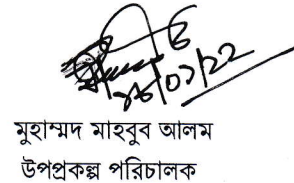 ২৬/০১/২২
মুহাম্মদ মাহবুব আলম
উপপ্রকল্প পরিচালক